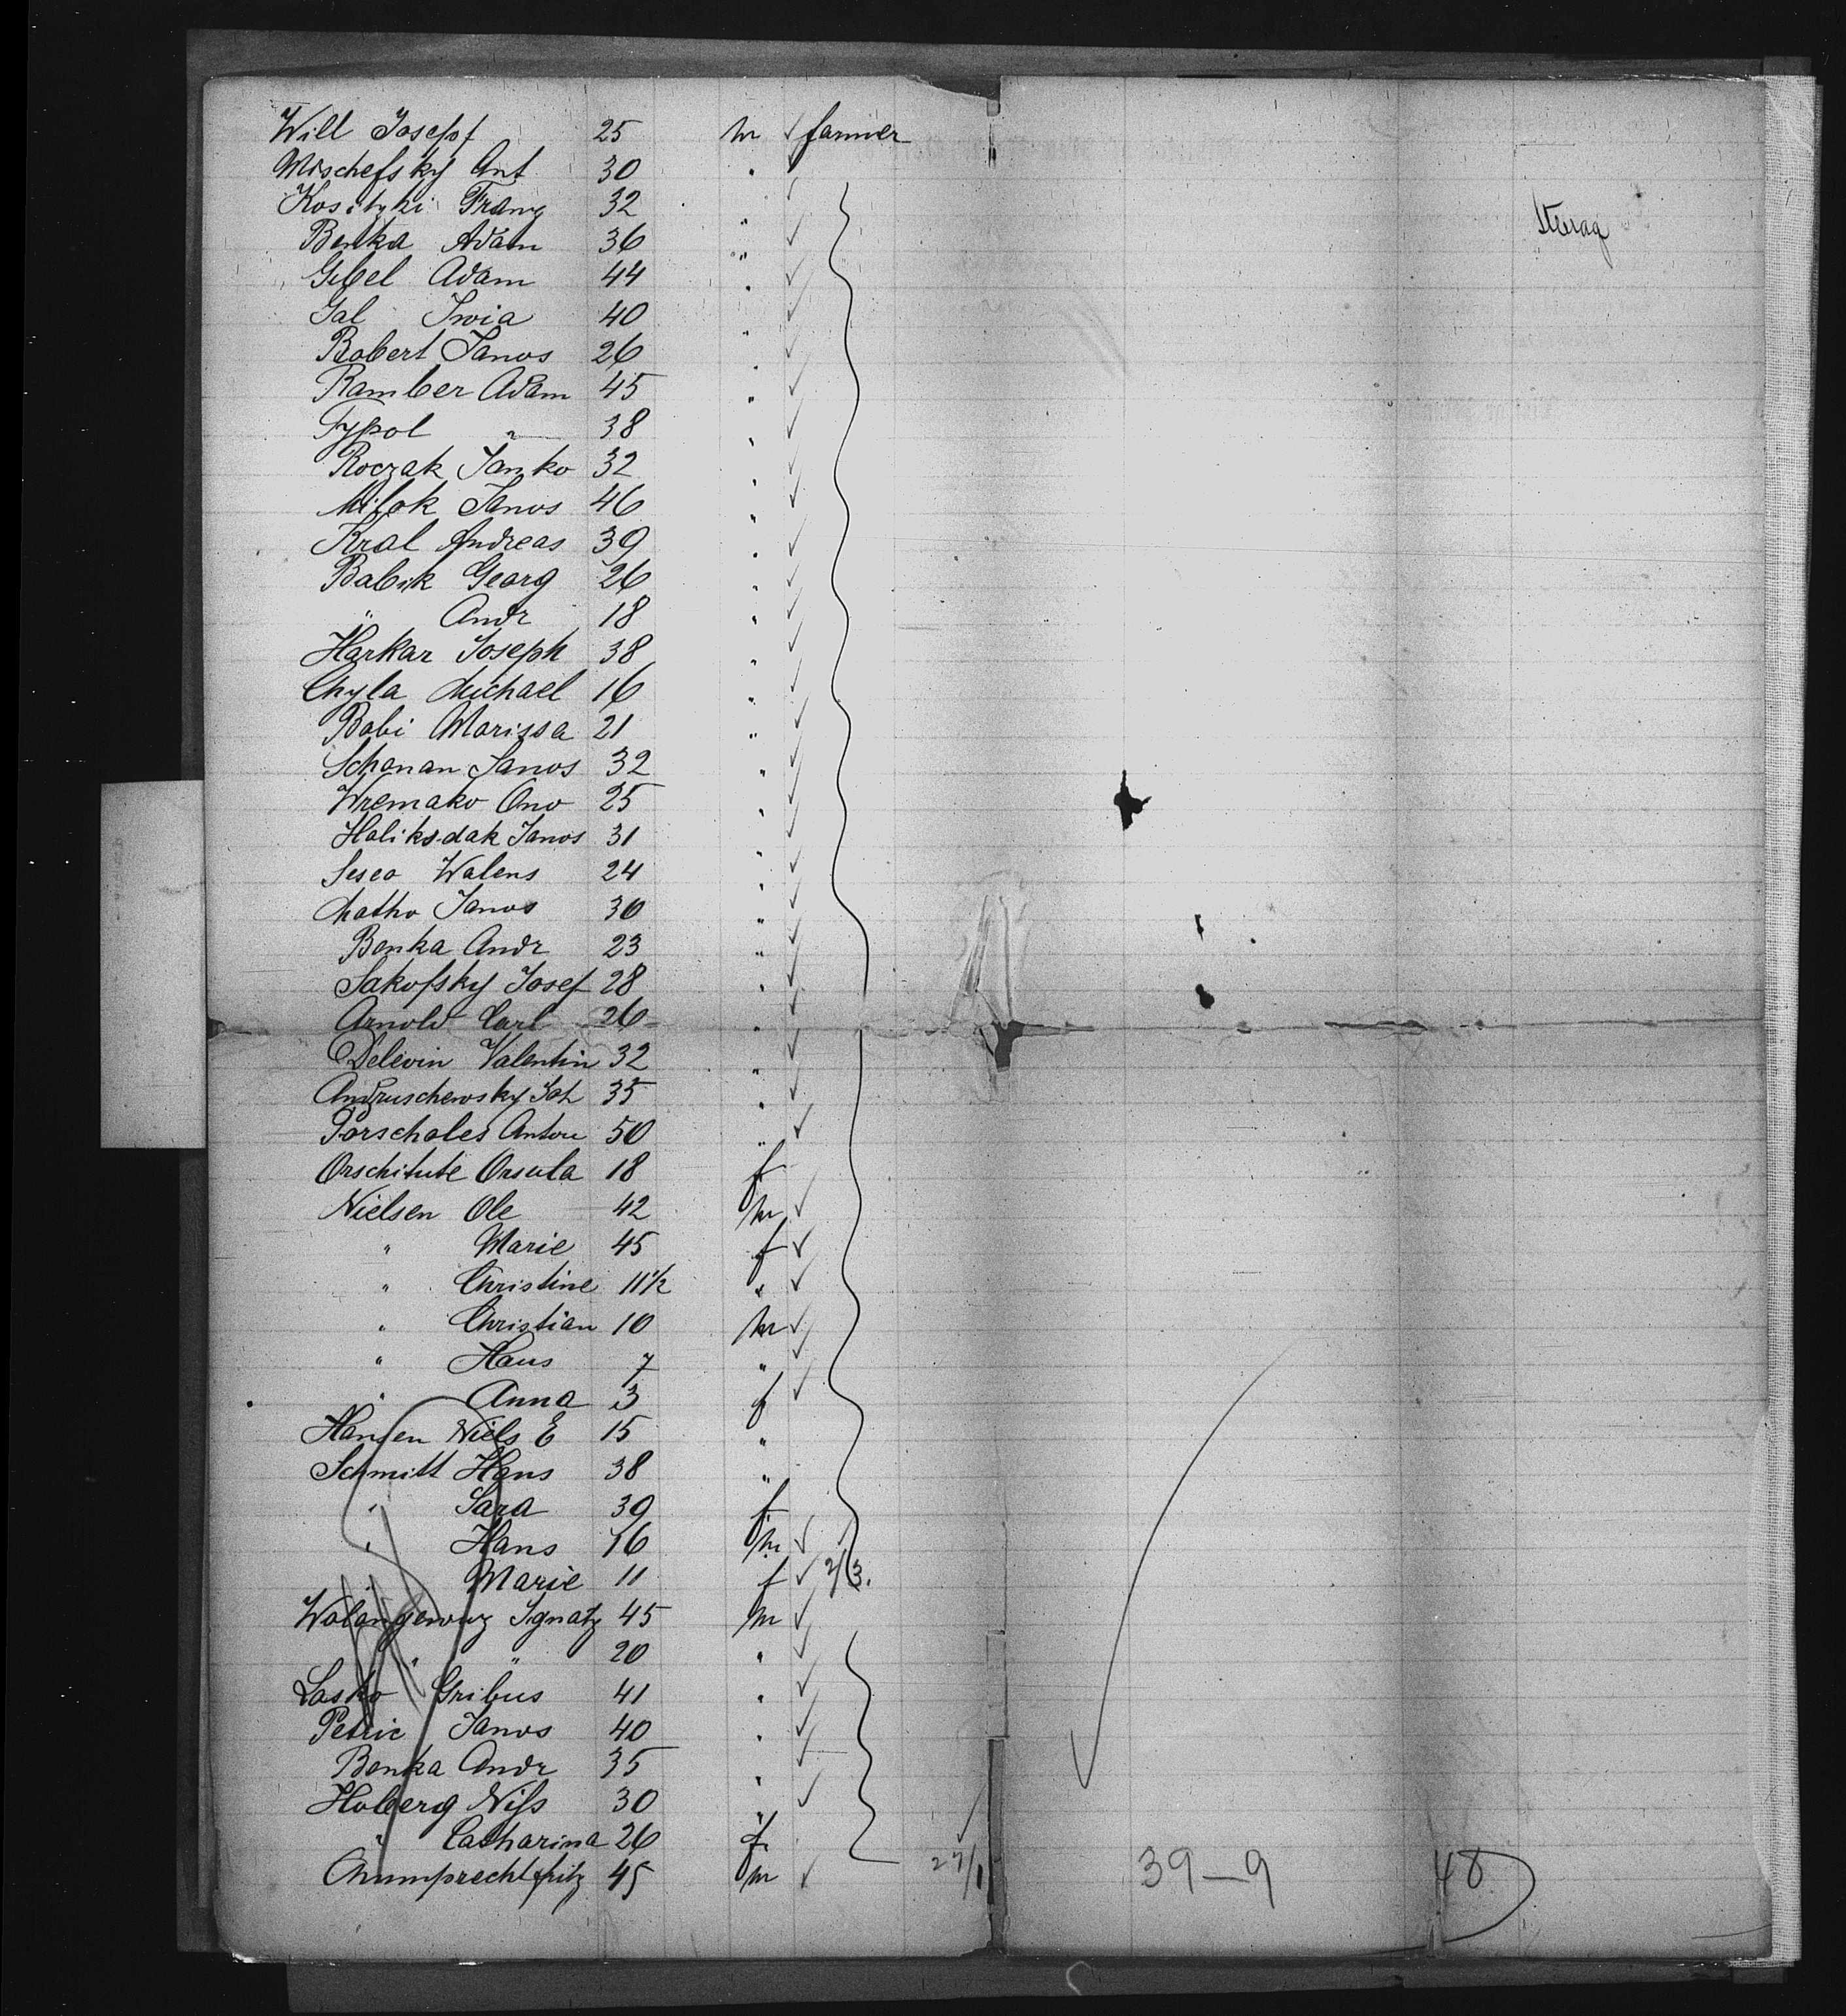 Will Josef 25 m ✓ farmer
Mischefsky Ant 30 " ✓
Kosityki Franz 32 " ✓
Sterag
Benka Adam 36 " ✓
Gibel Adam 44 " ✓
Gal Iwia 40 " ✓
Robert Janos 26 " ✓
Ramber Adam 45 " ✓
Typol " 38 " ✓
Roczak Janko 32 " ✓
Milok Janos 46 " ✓
Kral Andreas 39 " ✓
Babik Georg 26 " ✓
" Andr 18 " ✓
Harkar Joseph 38 " ✓
Chyla Michael 16 " ✓
Babi Marissa 21 " ✓
Schanan Janos 32 " ✓
Wremako Ono 25 " ✓
Haliksdak Janos 31 " ✓
Seseo Walens 24 " ✓
Matho Janos 30 " ✓
Benka Andr 23 " ✓
Sakofsky Josef 28 " ✓
Arnold Carl 26 " ✓
Delevin Valentin 32 " ✓
Andruschewsky Joh 35 " ✓
Porschales Anton 50 " ✓
Orschitute Orsula 18 f
Nielsen Ole 42 m ✓
" Marie 45 f ✓
" Christine 11½ " ✓
" Christian 10 m ✓
" Hans 7 " ✓
" Anna 3 f ✓
Hansen Niels E 15 "
Schmitt Hans 38 "
" Sara 39 f
" Hans 16 m ✓
" Marie 11 f ✓ 2/3.
Ignatz 45 m ✓
" " 20 " ✓
Lasko Gribus 41 " ✓
Petric Janos 40 " ✓
Benka Andr 35 " ✓
Hoberg Niss 30 " ✓
" Catharina 26 f
Fritz 45 m ✓ 27/1 39–9 48